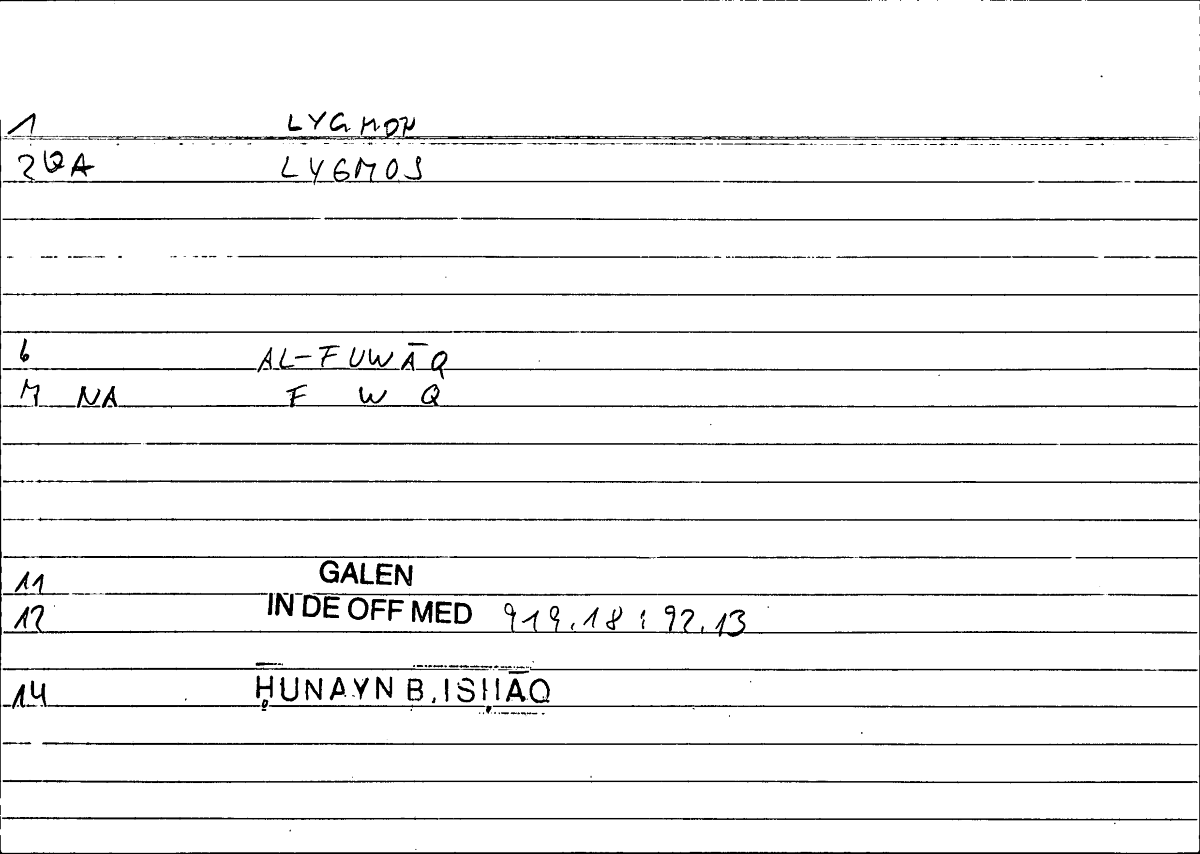 1 LYGMON
2 QA LYGMOS
6 AL-FUWĀQ
M NA F W Q
11 GALEN
12 IN DE OFF MED 919.18 : 92.13
14 ḤUNAYN B. ISḤĀQ